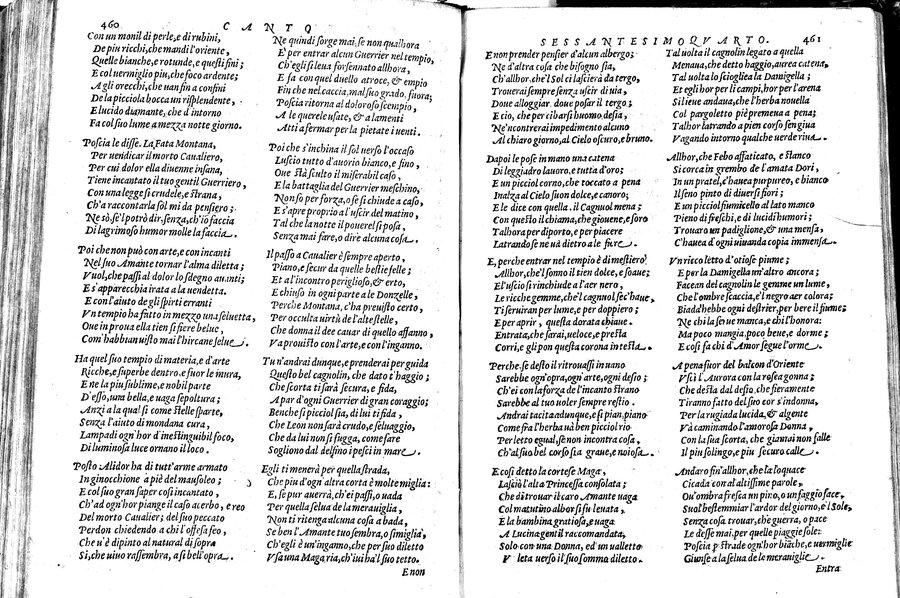 460 CANTO
Con un monil di perle, e di rubini,
De piu ricchi, che mandi l'oriente,
Quelle bianche, e rotunde, e questi fini;
E col vermiglio piu, che foco ardente;
A gli orecchi, che uan fin a confini
De la picciola bocca un risplendente,
E lucido diamante, che d'intorno
Fa col suo lume a mezza notte giorno.
Poscia le disse. La Fata Montana,
Per uendicar il morto Caualiero,
Per cui dolor ella diuenne insana,
Tiene incantato il tuo gentil Guerriero,
Con una legge sì crudele, e strana,
Ch'a raccontarla sol mi da pensiero;
Ne sò, se'l potrò dir, senza, ch'io faccia
Di lagrimoso humor molle la faccia.
Poi che non può con arte, e con incanti
Nel suo Amante tornar l'alma diletta;
Vuol, che passi al dolor lo sdegno auanti;
E s'apparecchia irata a la uendetta.
E con l'aiuto de gli spirti erranti
Vn tempio ha fatto in mezzo una seluetta,
Oue in proua ella tien sì fiere belue,
Com'habbian uisto mai l'hircane selue.
Ha quel suo tempio di materia, e d'arte
Ricche, e superbe dentro, e fuor le mura,
E ne la piu sublime, e nobil parte
D'esso, una bella, e uaga sepoltura;
Anzi a la qual sì come stelle sparte,
Senza l'aiuto di mondana cura,
Lampadi ogn'hor d'inestinguibil foco,
Di luminosa luce ornano il loco.
Posto Alidor ha di tutt'arme armato
In ginocchione a piè del mausoleo;
E col suo gran saper così incantato,
Ch'ad ogn'hor piange il caso acerbo, e reo
Del morto Caualier; del suo peccato
Perdon chiedendo a chi l'offesa feo,
Che u'è dipinto al natural di sopra
Sì, che uiuo rassembra, a sì bell'opra.
Ne quindi sorge mai, se non qualhora
E' per entrar alcun Guerrier nel tempio,
Ch'egli si leua forsennato allhora,
E fa con quel duello atroce, & empio
Fin che nel caccia, mal suo grado, fuora;
Poscia ritorna al doloroso scempio,
A le querele usate, & a lamenti
Atti a fermar per la pietate i uenti.
Poi che s'inchina il sol uerso l'occaso
L'uscio tutto d'auorio bianco, e fino,
Oue stà sculto il miserabil caso,
E la battaglia del Guerrier meschino,
Non so per forza, o se si chiude a caso,
E s'apre proprio a l'uscir del matino,
Tal che la notte il pouerel si posa,
Senza mai fare, o dire alcuna cosa.
Il passo a Caualier è sempre aperto,
Piano, e secur da quelle bestie felle;
Et al incontro periglioso, & erto,
E chiuso in ogni parte a le Donzelle,
Perche Montana, c'ha preuisto certo,
Per occulta uirtù de l'alte stelle,
Che donna il dee cauar di quello affanno,
Va prouisto con l'arte, e con l'inganno.
Tu n'andrai dunque, e prenderai per guida
Questo bel cagnolin, che dato t'haggio;
Che scorta ti sarà secura, e fida,
A par d'ogni Guerrier di gran coraggio;
Benche si picciol sia, di lui ti fida,
Che Leon non sarà crudo, e seluaggio,
Che da lui non si fugga, come fare
Sogliono dal delfino i pesci in mare.
Egli ti menerà per quella strada,
Che piu d'ogn'altra corta è molte miglia:
E, se pur auerrà, ch'ei passi, o uada
Per quella selua de la merauiglia,
Non ti ritenga alcuna cosa a bada,
Se ben l'Amante tuo sembra, o simiglia,
Ch'egli è un'inganno, che per suo diletto
V'sa una Maga ria, ch'iui ha'l suo tetto.
E non
SESSANTESIMOQVARTO. 461
E non prender pensier d'alcun albergo;
Ne d'altra cosa che bisogno sia,
Ch'allhor, che'l Sol ci lascierà da tergo,
Trouerai sempre senza uscir di uia,
Doue alloggiar, doue posar il tergo;
E ciò, che per cibarsi huomo desia,
Ne'ncontrerai impedimento alcuno
Al chiaro giorno, al Cielo oscuro, e bruno.
Dapoi le pose in mano una catena
Di leggiadro lauoro, e tutta d'oro;
E un picciol corno, che toccato a pena
Inalza al Cielo suon dolce, e canoro;
E le dice con quella. il Cagnuol mena;
Con questo il chiama, che giouene, e soro
Talhora per diporto, e per piacere
Latrando se nè uà dietro a le fiere.
E, perche entrar nel tempio è di mestiero
Allhor, che'l sonno il tien dolce, e soaue;
El'uscio si rinchiude a l'aer nero,
Le ricche gemme, che'l cagnuol sec'haue,
Ti seruiran per lume, e per doppiero;
E per aprir, questa dorata chiaue.
Entrata, che sarai, ueloce, e presta
Corri, e gli pon questa corona in testa.
Perche, se desto il ritrouassi in uano
Sarebbe ogn'opra, ogn'arte, ogni desio;
Ch'ei con la forza de l'incanto strano
Sarebbe al tuo uoler sempre restio.
Andrai tacita adunque, e si pian, piano
Come fra l'herba uà ben picciol rio
Per letto egual, se non incontra cosa,
Ch'al suo bel corso sia graue, e noiosa.
E così detto la cortese Maga,
Lasciò l'alta Principessa consolata;
Che di trouar il caro Amante uaga
Col matutino albor si fu leuata,
E la bambina gratiosa, e uaga
A Lucina gentil raccomandata,
Solo con una Donna, ed un ualletto
V leta uerso il suo somma diletto.
Tal uolta il cagnolin legato a quella
Menaua, che detto haggio, aurea catena,
Tal uolta lo scioglie a la Damigella;
Et egli hor per li campi, hor per l'arena
Si lieue andaua, che l'herba nouella
Col pargoletto piè premeua a pena;
Talhor latrando a pien corso sen giua
Vagando intorno qualche uerde riua.
Allhor, che Febo affaticato, e stanco
Si corca in grembo de l'amata Dori,
In un pratel, c'hauea purpureo, e bianco
Il seno pinto di diuersi fiori;
E un picciol fiumicello al lato manco
Pieno di freschi, e di lucidi humori;
Trouaro un padiglione, & una mensa,
C'hauea d'ogni uiuanda copia immensa.
Vn ricco letto d'otiose piume;
E per la Damigella un'altro ancora;
Facean del cagnolin le gemme un lume,
Che l'ombre scaccia, e'l negro aer colora;
Biada'hebbe ogni destrier, per bere il fiume;
Ne chi la serue manca, e chi l'honora:
Ma poco mangia, poco beue, e dorme;
E così fa chi d'Amor segue l'orme.
A pena fuor del balcon d'Oriente
Vscì l'Aurora con la rosea gonna;
Che desta dal desio, che feramente
Tiranno fatto del suo cor s'indonna,
Per la rugiada lucida, & algente
Và caminando l'amorosa Donna,
Con la sua scorta, che giamai non falle
Il piu solingo, e piu securo calle.
Andaro fin'allhor, che la loquace
Cicada con al altissime parole,
Ou'ombra fresca un pino, o un faggio face,
Suol bestemmiar l'ardor del giorno, e l Sole,
Senza cosa trouar, che guerra, o pace
Le desse mai, per quelle piaggie sole:
Poscia p strade ogn'hor biāche, e uermiglie
Giunse a la selua de le merauiglie.
Entra